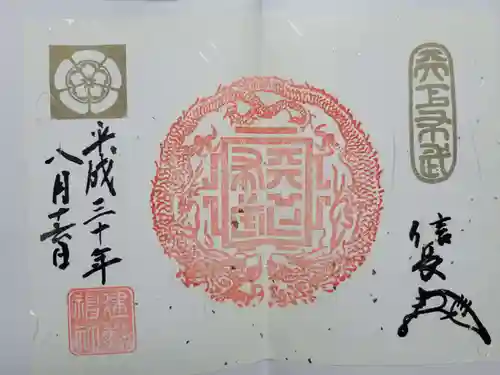 天下布武
信長
天下布武
平成三十年
八月十六日
建勲神社